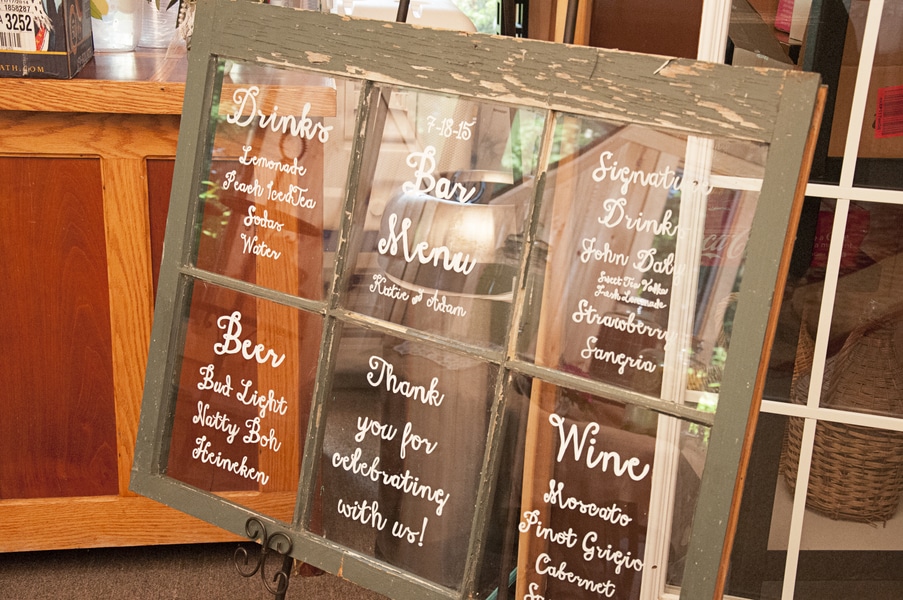 1858287
3252
ATH.COM
Drinks
Lemonade
Peach Iced Tea
Sodas
Water
7-18-15
Bar
Menu
Katie and Adam
Signature
Drink
John Daly
Sweet Tea Vodka
Fresh Lemonade
Strawberry
Sangria
Beer
Bud Light
Natty Boh
Heineken
Thank
you for
celebrating
with us!
Wine
Moscato
Pinot Grigio
Cabernet